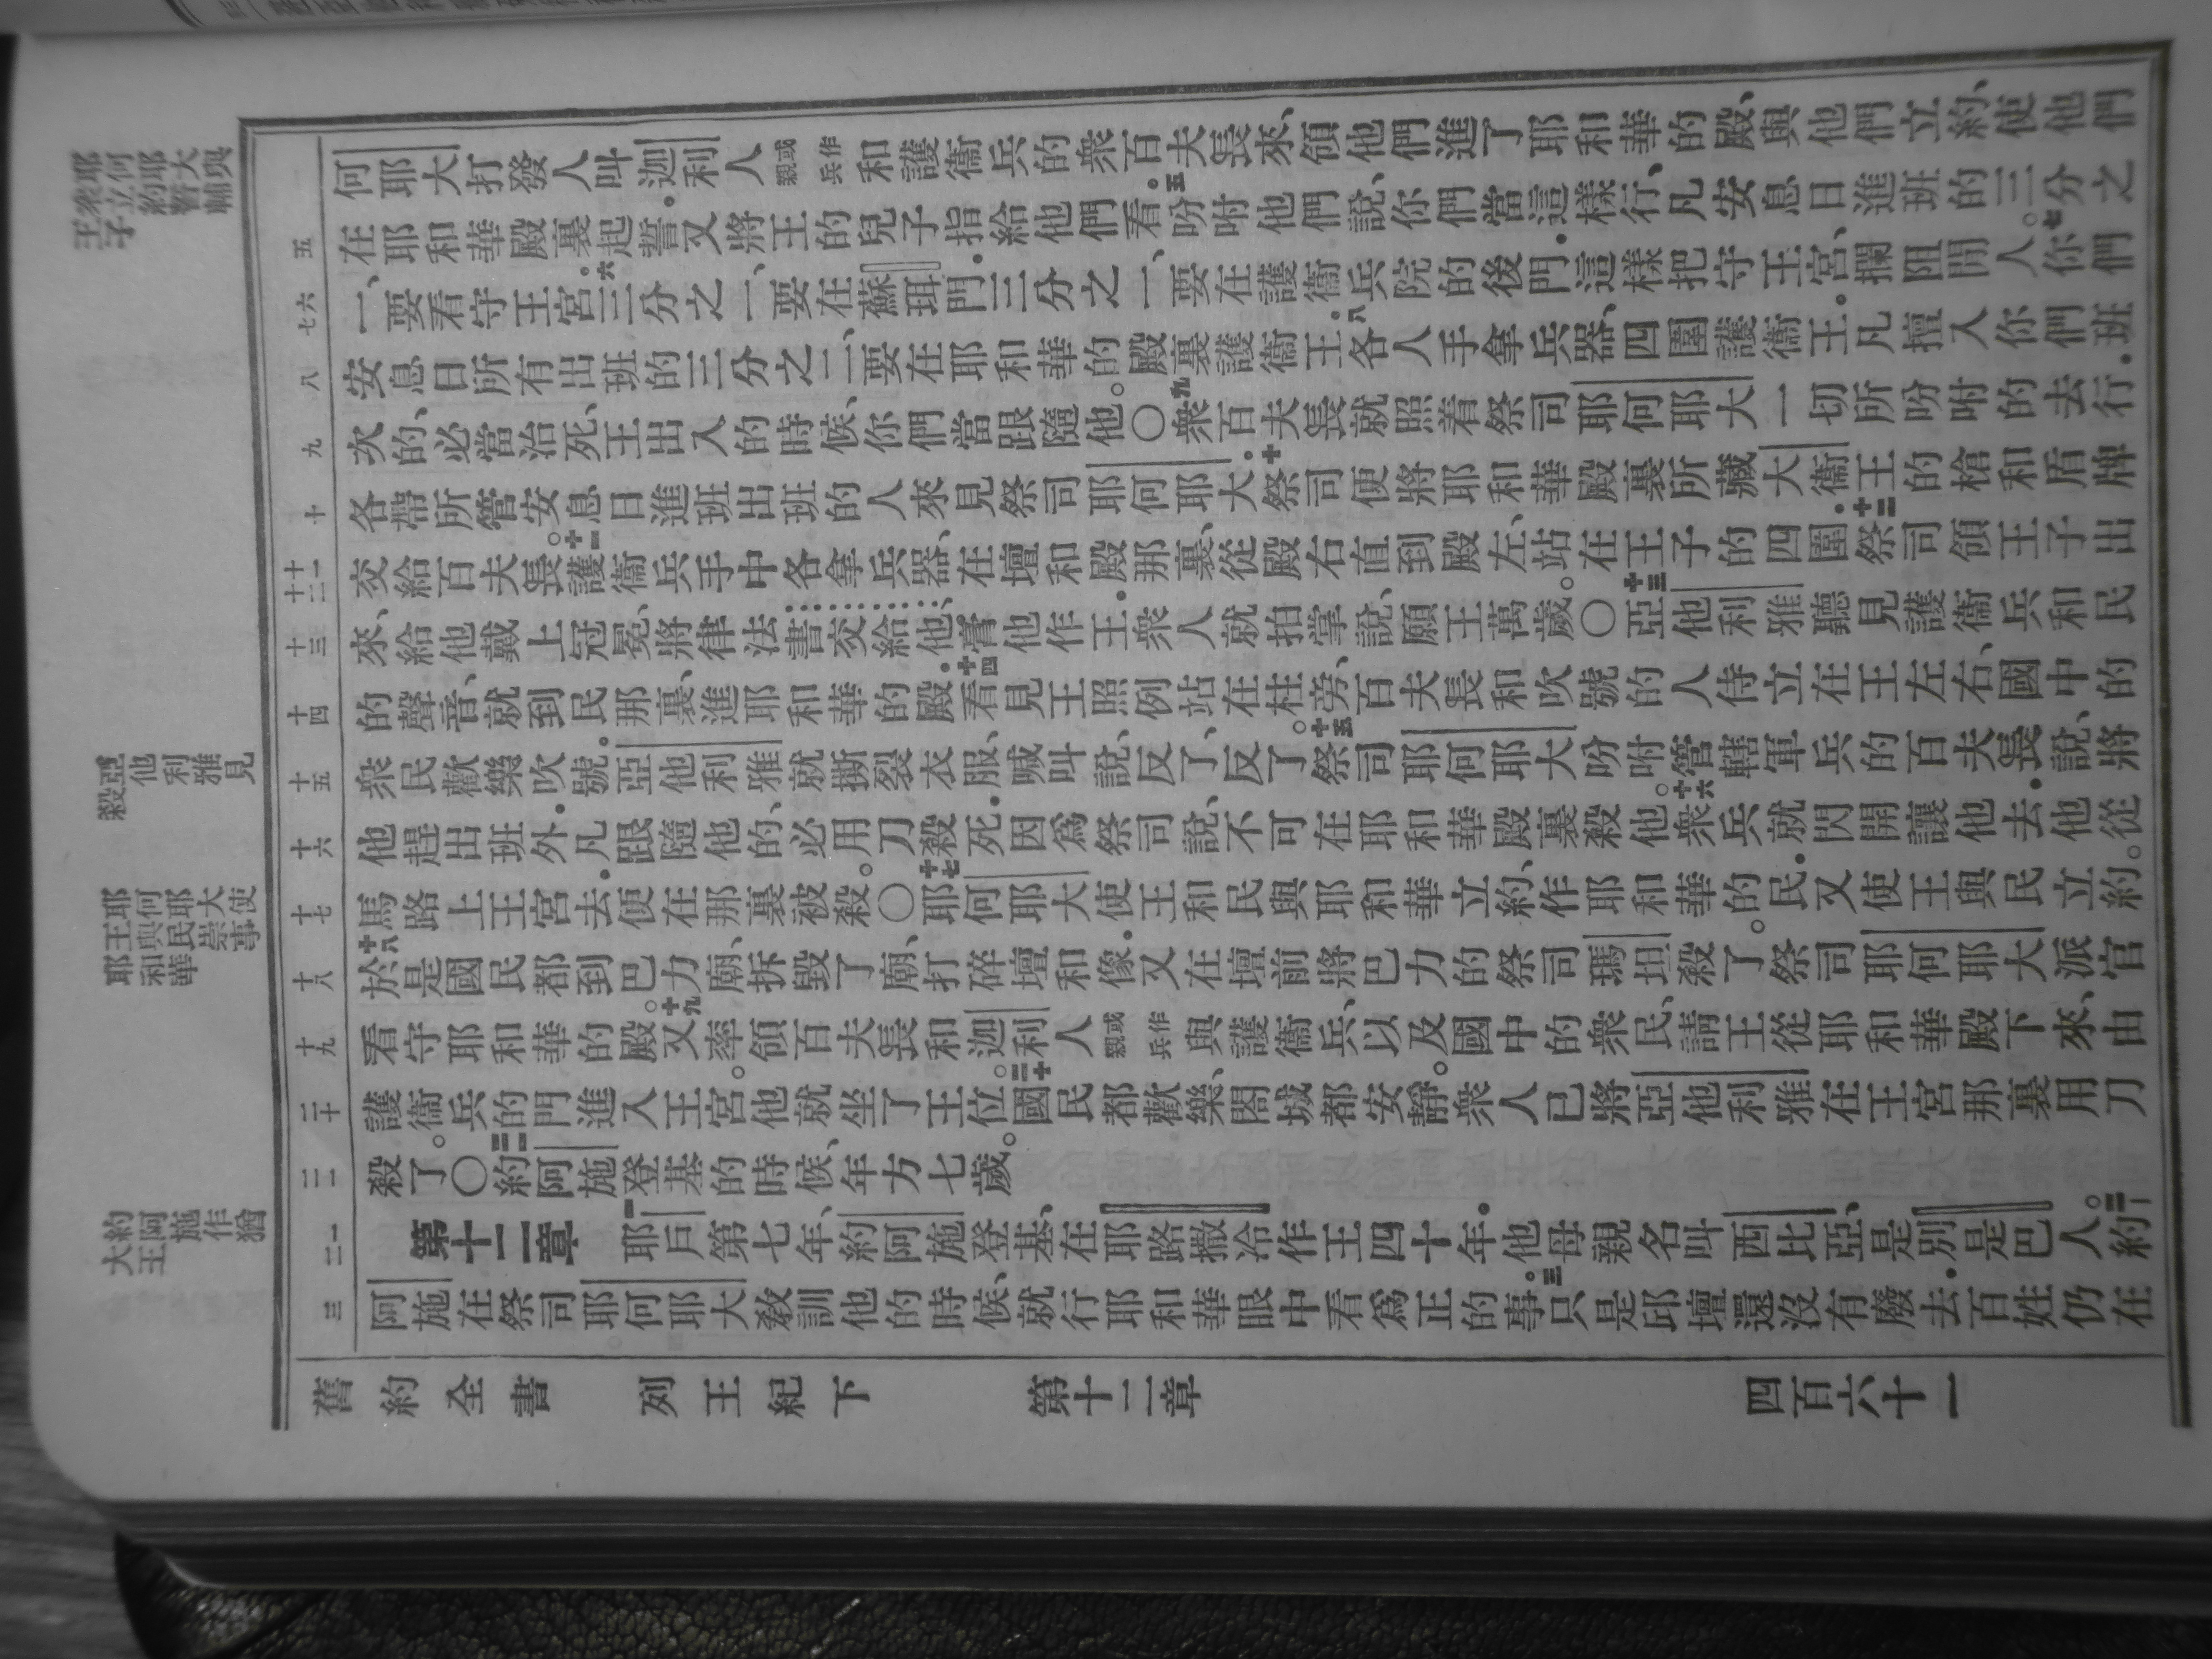 耶何耶大與
衆立約誓輔
王子
亞他利雅見
殺
耶何耶大使
王與民崇事
耶和華
約阿施作猶
大王
五
六
七
八
九
十
十一
十二
十三
十四
十五
十六
十七
十八
十九
二十
二一
一
二
三
何耶大打發人叫迦利人親或作兵和護衞兵的衆百夫長來、領他們進了耶和華的殿、與他們立約、使他們
在耶和華殿裏起誓。又將王的兒子指給他們看。五吩咐他們說、你們當這樣行、凡安息日進班的三分之
一、要看守王宮。六三分之一、要在蘇珥門。三分之一、要在護衞兵院的後門。這樣把守王宮、攔阻閒人。七你們
安息日所有出班的三分之二、要在耶和華的殿裏護衞王。八各人手拿兵器、四圍護衞王。凡擅入你們班
次的、必當治死、王出入的時候、你們當跟隨他。〇九衆百夫長就照着祭司耶何耶大一切所吩咐的去行。
各帶所管安息日進班出班的人來見祭司耶何耶大。十祭司便將耶和華殿裏所藏大衞王的槍和盾牌
交給百夫長。十一護衞兵手中各拿兵器、在壇和殿那裏、從殿右直到殿左、站在王子的四圍。十二祭司領王子出
來、給他戴上冠冕、將律法書交給他、膏他作王。衆人就拍掌說、願王萬歲。〇十三亞他利雅聽見護衞兵和民
的聲音、就到民那裏、進耶和華的殿。十四看見王照例站在柱旁、百夫長和吹號的人侍立在王左右、國中的
衆民歡樂吹號。亞他利雅就撕裂衣服、喊叫說、反了、反了。十五祭司耶何耶大吩咐管轄軍兵的百夫長說、將
他趕出班外。凡跟隨他的、必用刀殺死。因爲祭司說、不可在耶和華殿裏殺他。十六衆兵就閃開讓他去。他從
馬路上王宮去。便在那裏被殺。〇十七耶何耶大使王和民與耶和華立約、作耶和華的民。又使王與民立約。
十八於是國民都到巴力廟、拆毀了廟、打碎壇和像。又在壇前將巴力的祭司瑪坦殺了。祭司耶何耶大派官
看守耶和華的殿。十九又率領百夫長和迦利人親或作兵與護衞兵、以及國中的衆民、請王從耶和華殿下來、由
護衞兵的門進入王宮。他就坐了王位。二十國民都歡樂、閤城都安靜。衆人已將亞他利雅在王宮那裏用刀
殺了。〇二一約阿施登基的時候、年方七歲。
第十二章 一耶戶第七年、約阿施登基、在耶路撒冷作王四十年。他母親名叫西比亞、是別是巴人。二約
阿施在祭司耶何耶大敎訓他的時候、就行耶和華眼中看爲正的事。三只是邱壇還沒有廢去。百姓仍在
舊約全書 列王紀下 第十二章 四百六十一